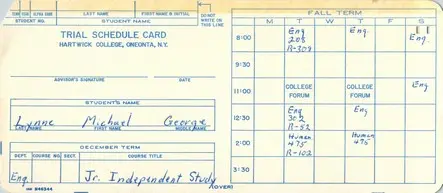 LAST NAME FIRST NAME & INITIAL
STUDENT NO. STUDENT NAME
DO NOT
WRITE ON
THIS LINE
TRIAL SCHEDULE CARD
HARTWICK COLLEGE, ONEONTA, N.Y.
ADVISOR'S SIGNATURE DATE
STUDENT'S NAME
Lynne Michael George
LAST NAME FIRST NAME MIDDLE NAME
DECEMBER TERM
DEPT. COURSE NO. SECT. COURSE TITLE
Eng. Jr. Independent Study
(OVER)
FALL TERM
M T W T F S
8:00 Eng 208 R-309 Eng. Eng.
9:30
11:00 COLLEGE FORUM COLLEGE FORUM
12:30 Eng 352 R-52 Eng
2:00 Human 475 R-102 Human 475
3:30